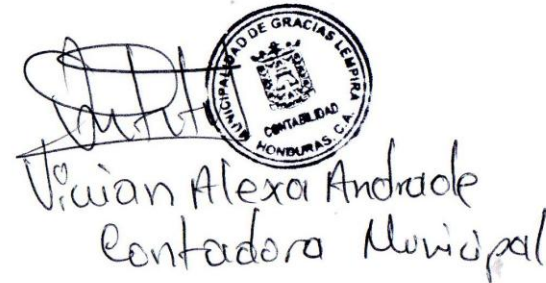 MUNICIPALIDAD DE GRACIAS LEMPIRA
CONTABILIDAD
HONDURAS, C.A.
Vivian Alexa Andrade
Contadora Municipal